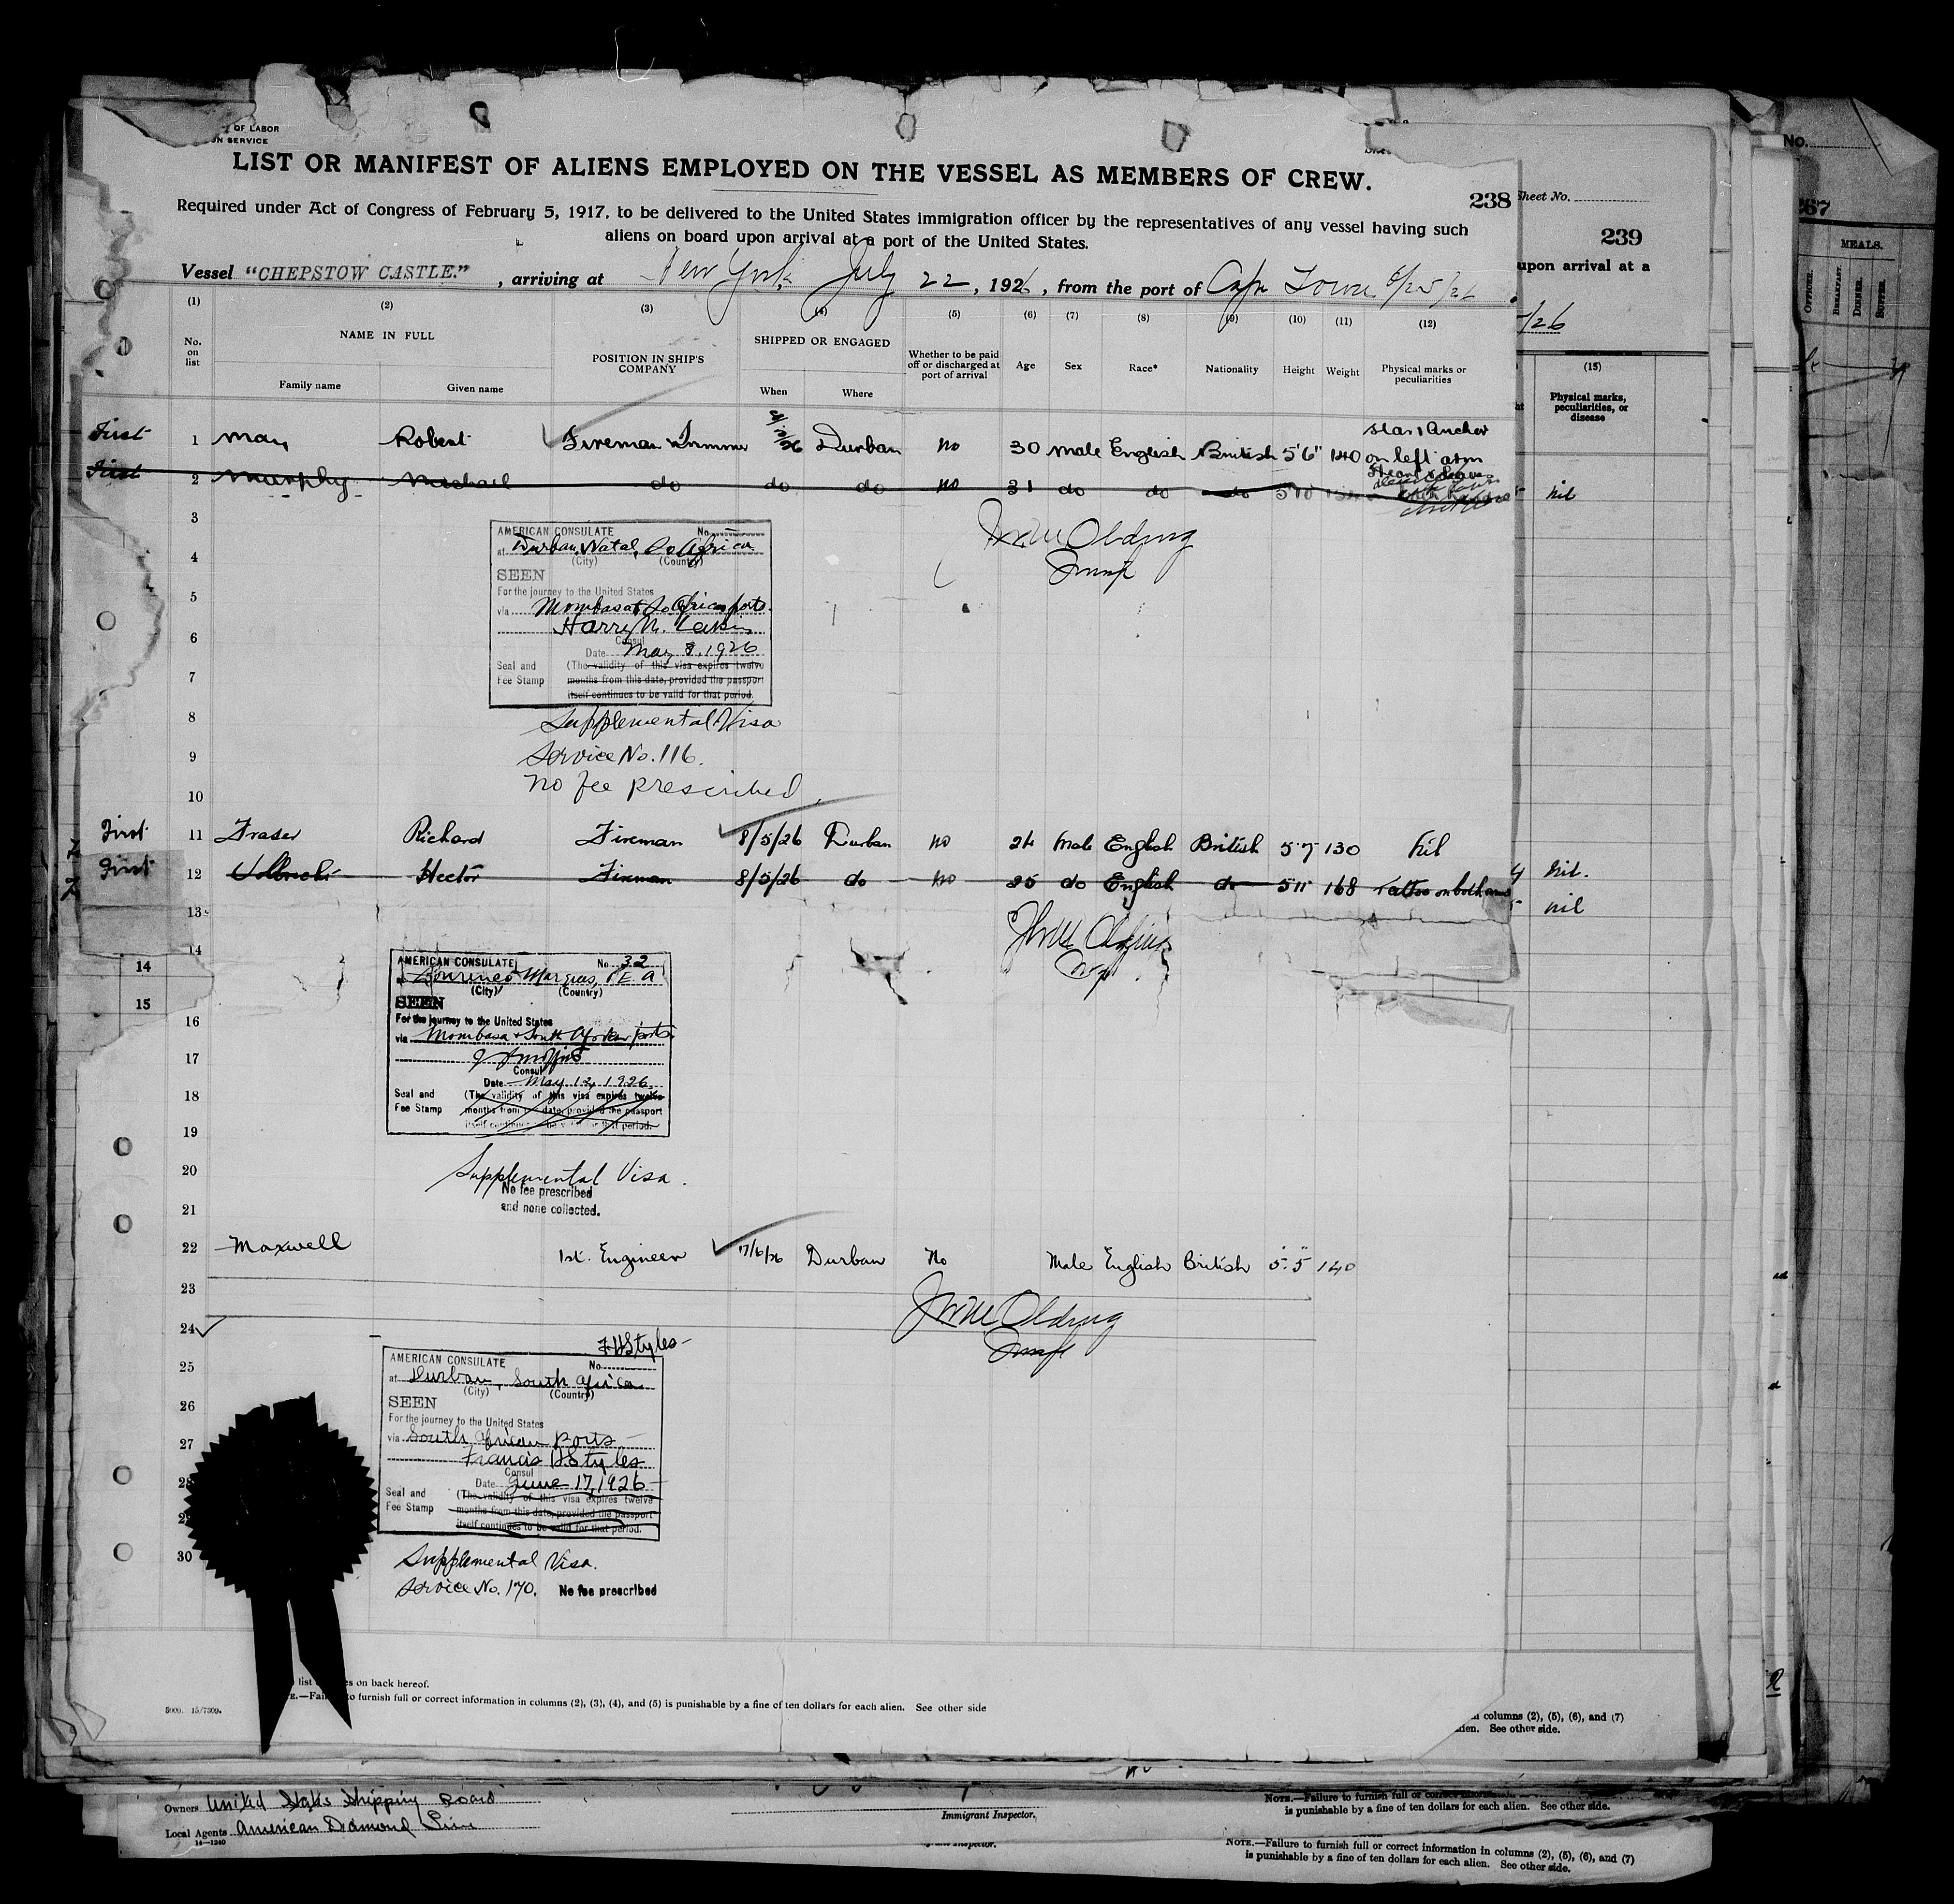 OF LABOR
ON SERVICE
LIST OR MANIFEST OF ALIENS EMPLOYED ON THE VESSEL AS MEMBERS OF CREW.
238
Required under Act of Congress of February 5, 1917, to be delivered to the United States immigration officer by the representatives of any vessel having such
aliens on board upon arrival at a port of the United States.
Vessel "CHEPSTOW CASTLE." , arriving at New York, July 22, 1926, from the port of Cape Town 6/25/26
(1) (2) (3) (4) (5) (6) (7) (8) (9) (10) (11) (12)
No. on list
NAME IN FULL
Family name Given name
POSITION IN SHIP'S COMPANY
SHIPPED OR ENGAGED
When Where
Whether to be paid off or discharged at port of arrival
Age Sex Race* Nationality Height Weight
Physical marks or peculiarities
First 1 May Robert Fireman Durban no 30 Male English British 5'6" 140 Star & Anchor on left arm
First 2 Murphy Michael do do do no 31 do do do 5'10
3
Olding
4
5
6
7
8
9
10
AMERICAN CONSULATE No.
at Durban, Natal, So Africa
(City) (Country)
SEEN
For the journey to the United States
via Mombasa & So African ports.
Harry
Consul
Date May 8, 1926
Seal and Fee Stamp
(The validity of this visa expires twelve
months from this date, provided the passport
itself continues to be valid for that period.
Supplemental Visa
Service No. 116.
No fee prescribed
First 11 Fraser Richard Fireman 8/5/26 Durban no 24 Male English British 5'7 130 Nil
First 12 Hector Fireman 8/5/26 do no 25 do English do 5'11" 168 Tattoo on both arms
13
14
16
17
18
19
20
21
AMERICAN CONSULATE No. 32
Lourenco Marques, P E A
(City) (Country)
SEEN
For the journey to the United States
via Mombasa & South African ports
Consul
Date May 12, 1926
Seal and Fee Stamp
(The validity of this visa expires twelve
months from date, provided the passport
itself continues to be valid for that period.
Supplemental Visa.
No fee prescribed
and none collected.
22 Maxwell 1st. Engineer 17/6/26 Durban No Male English British 5'.5" 140
23
Olding
24
25
26
27
28
29
30
F H Styles
AMERICAN CONSULATE No.
at Durban, South Africa
(City) (Country)
SEEN
For the journey to the United States
via South African ports
Francis H Styles
Consul
Date June 17, 1926
Seal and Fee Stamp
(The validity of this visa expires twelve
months from this date, provided the passport
itself continues to be valid for that period.
Supplemental Visa.
Service No. 170. No fee prescribed
list on back hereof.
to furnish full or correct information in columns (2), (3), (4), and (5) is punishable by a fine of ten dollars for each alien. See other side
14
15
Sheet No.
239
upon arrival at a
/26
(15)
Physical marks, peculiarities, or disease
nil
nil.
nil
columns (2), (5), (6), and (7)
See other side.
No.
MEALS.
OFFICER.
BREAKFAST.
DINNER.
SUPPER.
Owners United States Shipping Board
Local Agents American Diamond Line
14—1240
Immigrant Inspector.
NOTE.—Failure to furnish full or correct information
is punishable by a fine of ten dollars for each alien. See other side.
NOTE.—Failure to furnish full or correct information in columns (2), (5), (6), and (7)
is punishable by a fine of ten dollars for each alien. See other side.